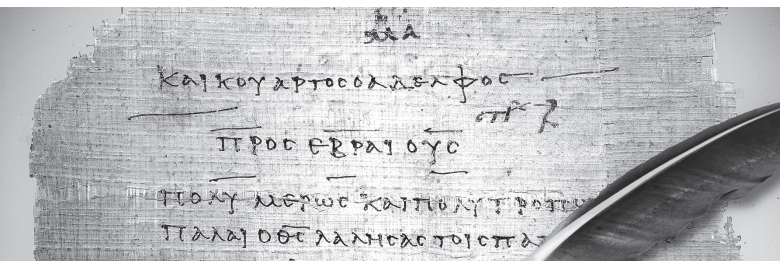 ΜΑ
ΚΑΙ ΚΟΥΑΡΤΟϹ Ο ΑΔΕΛΦΟϹ
ΠΡΟϹ ΕΒΡΑΙΟΥϹ
ΠΟΛΥΜΕΡΩϹ ΚΑΙ ΠΟΛΥΤΡΟΠΩ
ΠΑΛΑΙ Ο Θ̅Ϲ̅ ΛΑΛΗϹΑϹ ΤΟΙϹ ΠΑ